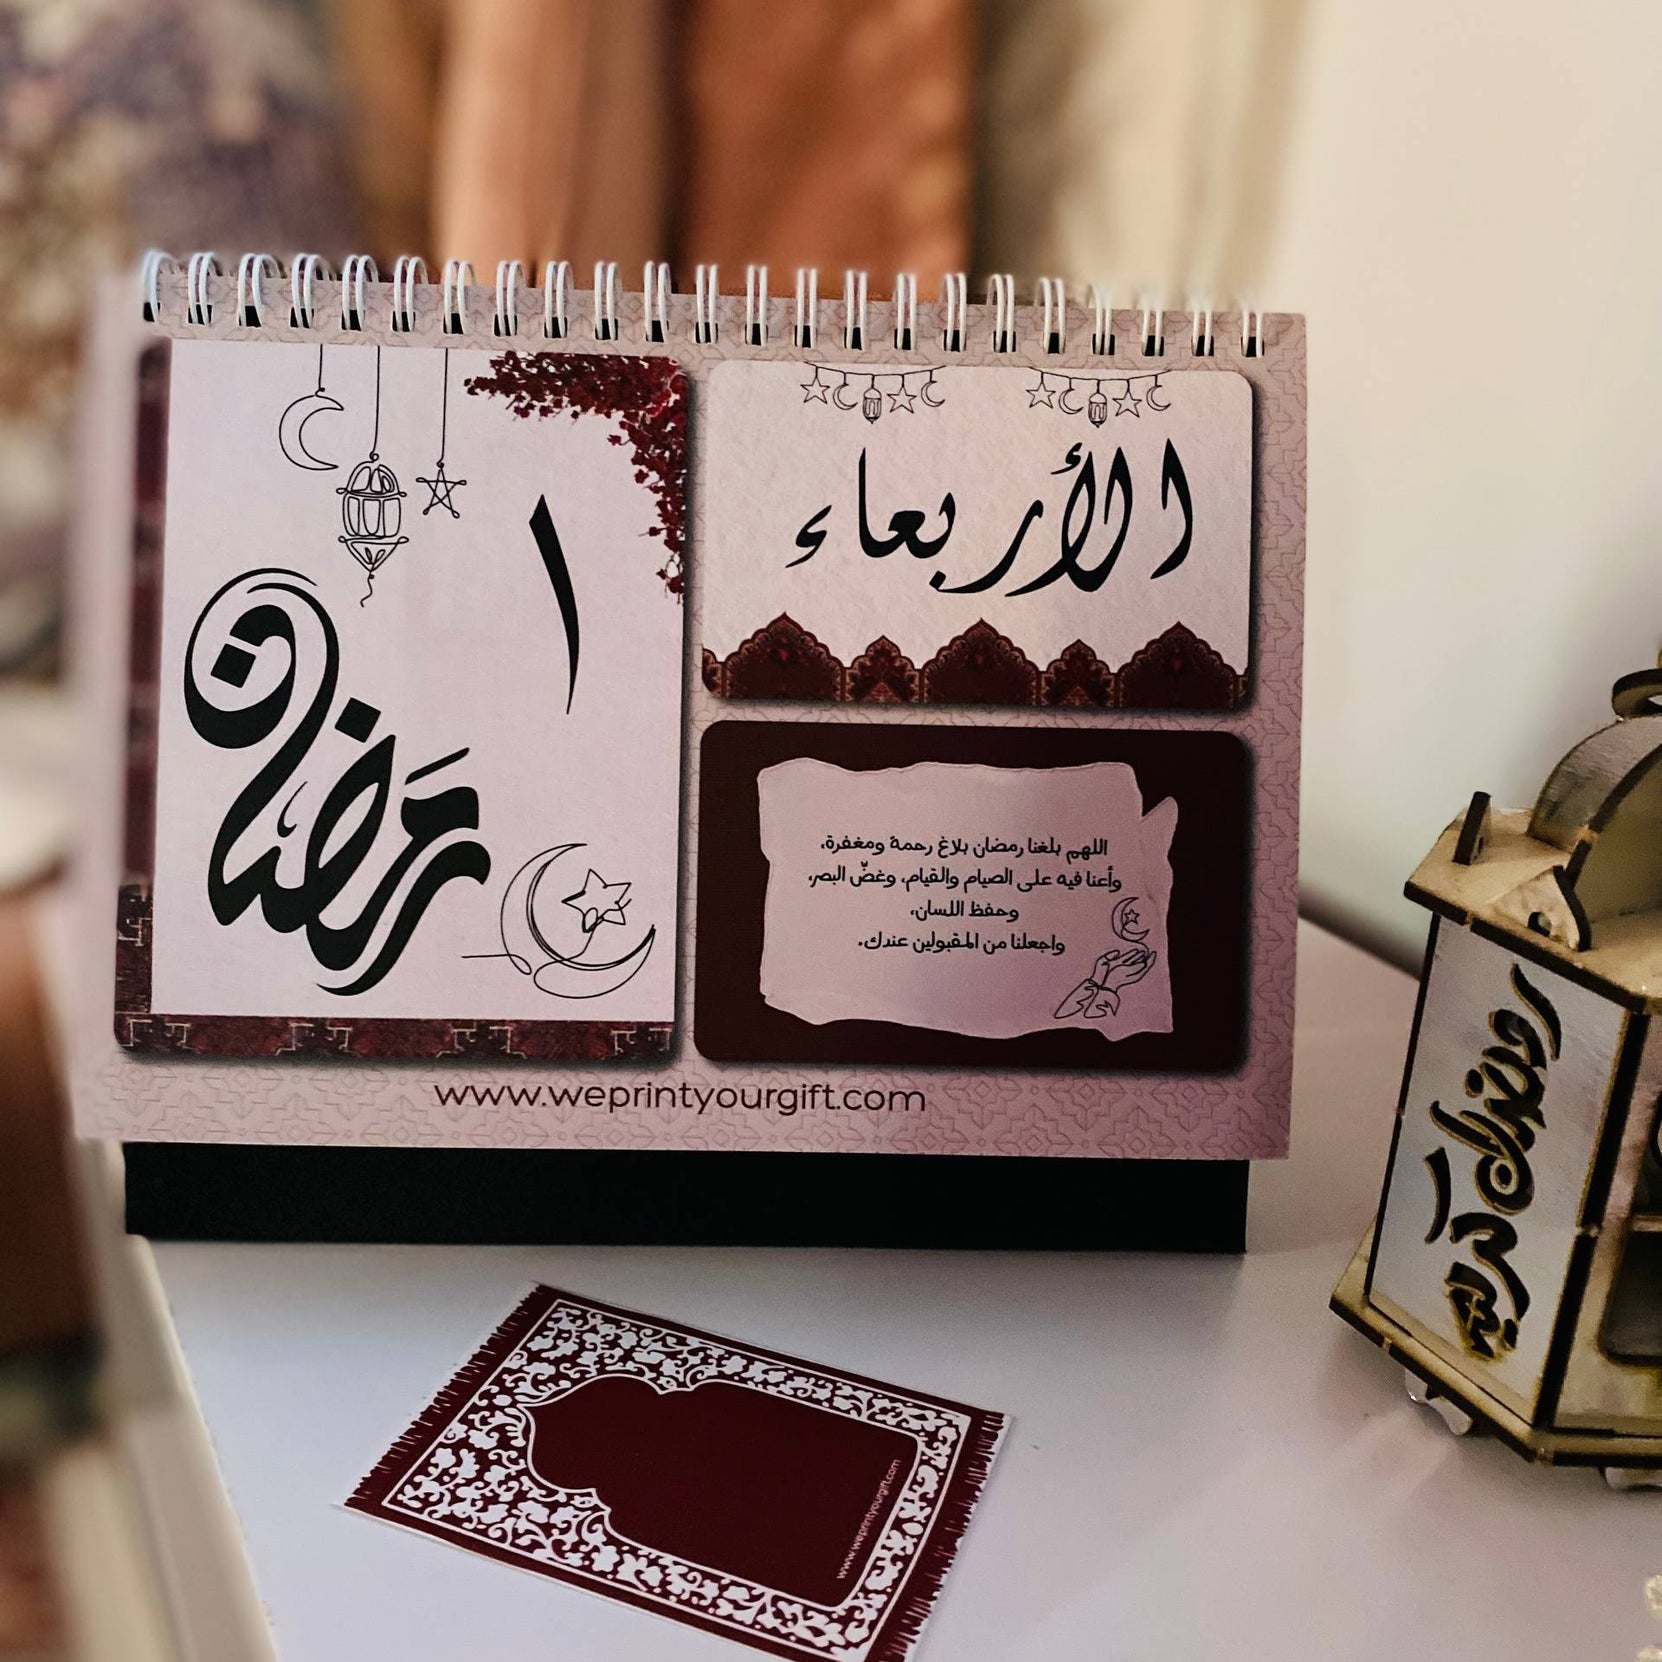 ١
رمضان
الأربعاء
اللهم بلغنا رمضان بلاغ رحمة ومغفرة،
وأعنا فيه على الصيام والقيام، وغضّ البصر،
وحفظ اللسان،
واجعلنا من المقبولين عندك.
www.weprintyourgift.com
www.weprintyourgift.com
رمضان كريم